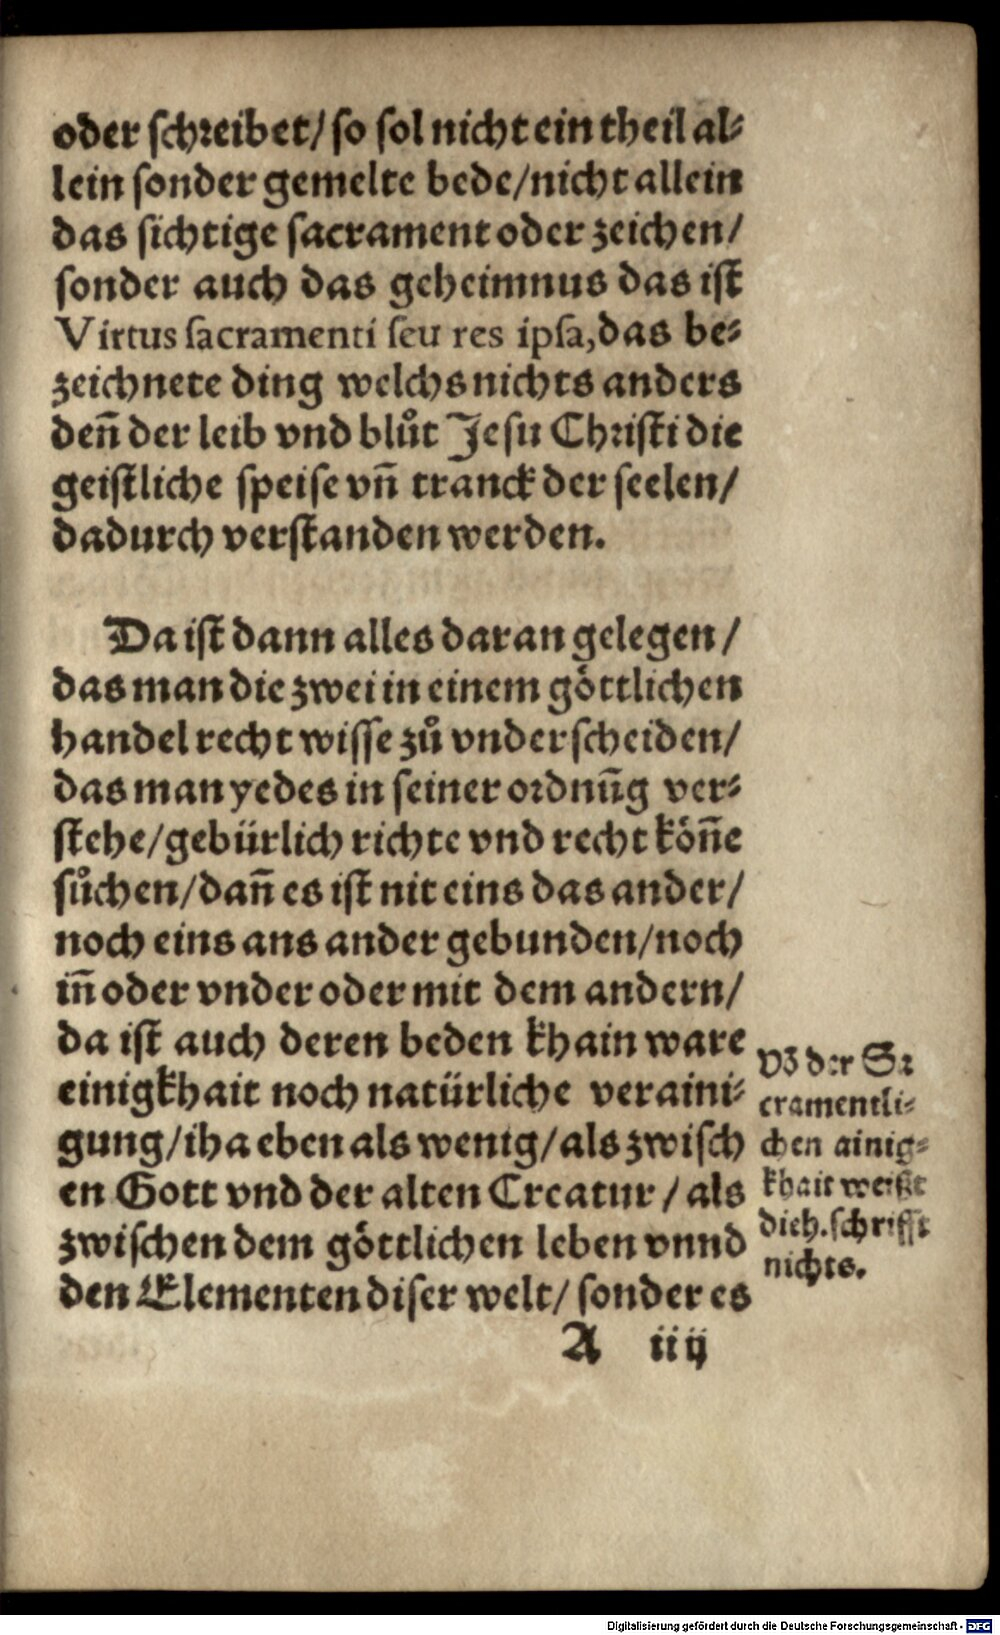 oder schreibet/ so sol nicht ein theil al⸗
lein sonder gemelte bede/nicht allein
das sichtige sacrament oder zeichen/
sonder auch das geheimnus das ist
Virtus sacramenti seu res ipsa, das be⸗
zeichnete ding welchs nichts anders
deñ der leib vnd blůt Jesu Christi die
geistliche speise vñ tranck der seelen/
dadurch verstanden werden.
Da ist dann alles daran gelegen/
das man die zwei in einem göttlichen
handel recht wisse zů vnderscheiden/
das man yedes in seiner ordnūg ver⸗
stehe/gebürlich richte vnd recht köñe
sůchen/dañ es ist nit eins das ander/
noch eins ans ander gebunden/noch
iñ oder vnder oder mit dem andern/
da ist auch deren beden khain ware
einigkhait noch natürliche veraini⸗
gung/iha eben als wenig/als zwisch
en Gott vnd der alten Creatur/ als
zwischen dem göttlichen leben vnnd
den Elementen diser welt/ sonder es
A iiij
Vō der Sa
cramentli⸗
chen ainig⸗
khait weißt
die h. schrifft
nichts.
Digitalisierung gefördert durch die Deutsche Forschungsgemeinschaft - DFG